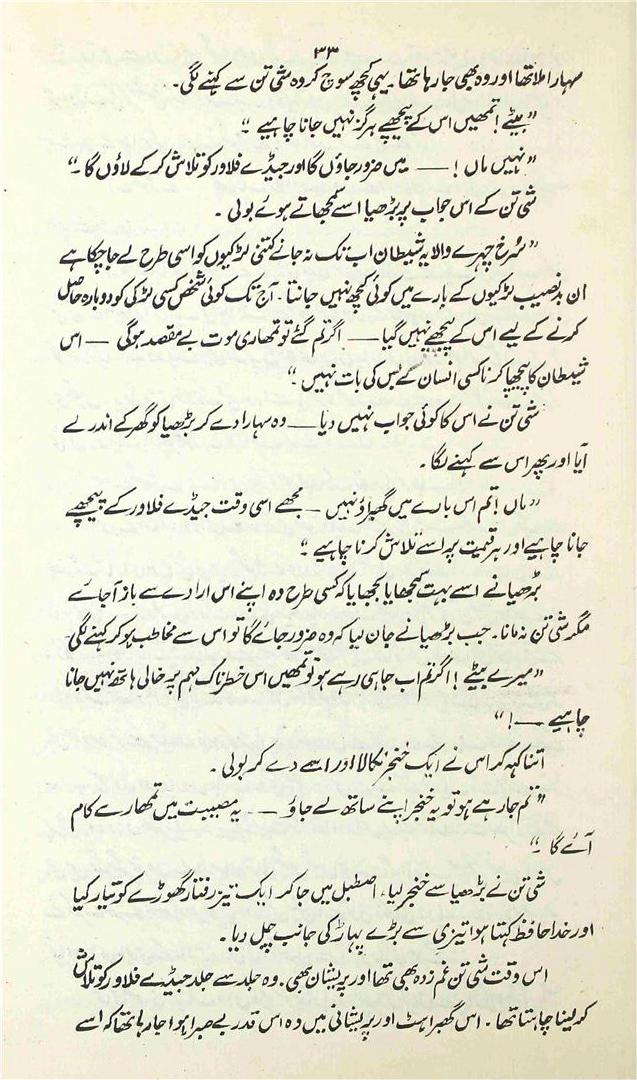 ۳۳
سہارا ملا تھا اور وہ بھی جا رہا تھا۔ یہی کچھ سوچ کر وہ شی تن سے کہنے لگی۔
”بیٹے! تمھیں اس کے پیچھے ہرگز نہیں جانا چاہیے۔“
”نہیں ماں! — میں ضرور جاؤں گا اور جیڈے فلاور کو تلاش کر کے لاؤں گا۔“
شی تن کے اس جواب پر بڑھیا اسے سمجھاتے ہوئے بولی۔
”سُرخ چہرے والا یہ شیطان اب تک نہ جانے کتنی لڑکیوں کو اسی طرح لے جا چکا ہے
ان بدنصیب لڑکیوں کے بارے میں کوئی کچھ نہیں جانتا۔ آج تک کوئی شخص کسی لڑکی کو دوبارہ حاصل
کرنے کے لیے اس کے پیچھے نہیں گیا — اگر تم گئے تو تمھاری موت بے مقصد ہوگی — اس
شیطان کا پیچھا کرنا کسی انسان کے بس کی بات نہیں۔“
شی تن نے اس کا کوئی جواب نہیں دیا — وہ سہارا دے کر بڑھیا کو گھر کے اندر لے
آیا اور پھر اس سے کہنے لگا۔
”ماں! تم اس بارے میں گھبراؤ نہیں — مجھے اسی وقت جیڈے فلاور کے پیچھے
جانا چاہیے اور ہر قیمت پر اسے تلاش کرنا چاہیے۔“
بڑھیا نے اسے بہت سمجھایا بجھایا کہ کسی طرح وہ اپنے اس ارادے سے باز آ جائے
مگر شی تن نہ مانا۔ جب بڑھیا نے جان لیا کہ وہ ضرور جائے گا تو اس سے مخاطب ہو کر کہنے لگی۔
”میرے بیٹے! اگر تم اب جا ہی رہے ہو تو تمھیں اس خطرناک مہم پر خالی ہاتھ نہیں جانا
چاہیے —!“
اتنا کہہ کر اس نے ایک خنجر نکالا اور اسے دے کر بولی۔
”تم جا رہے ہو تو یہ خنجر اپنے ساتھ لے جاؤ — یہ مصیبت میں تمھارے کام
آئے گا۔“
شی تن نے بڑھیا سے خنجر لیا، اصطبل میں جا کر ایک تیز رفتار گھوڑے کو تیار کیا
اور خدا حافظ کہتا ہوا تیزی سے بڑے پہاڑ کی جانب چل دیا۔
اس وقت شی تن غم زدہ بھی تھا اور پریشان بھی۔ وہ جلد سے جلد جیڈے فلاور کو تلاش
کر لینا چاہتا تھا۔ اس گھبراہٹ اور پریشانی میں وہ اس قدر بے صبرا ہوا جا رہا تھا کہ اسے